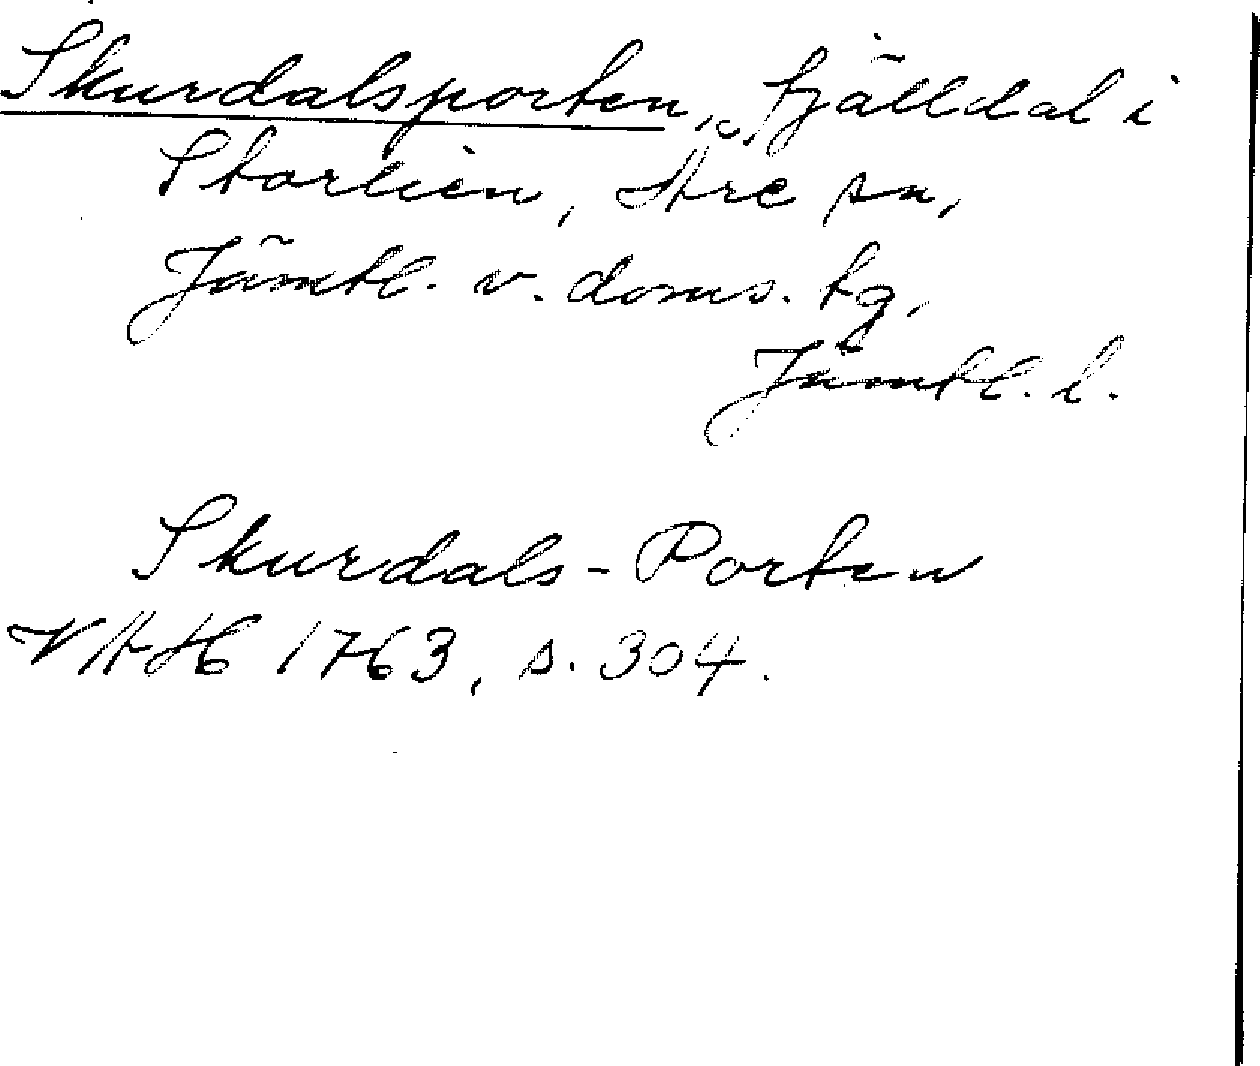 Skurdalsporten, fjälldal i
Storlien, Åre sn,
Jämtl. v. doms. tg,
Jämtl. l.
Skurdals-Porten
VAH 1763, s. 304.